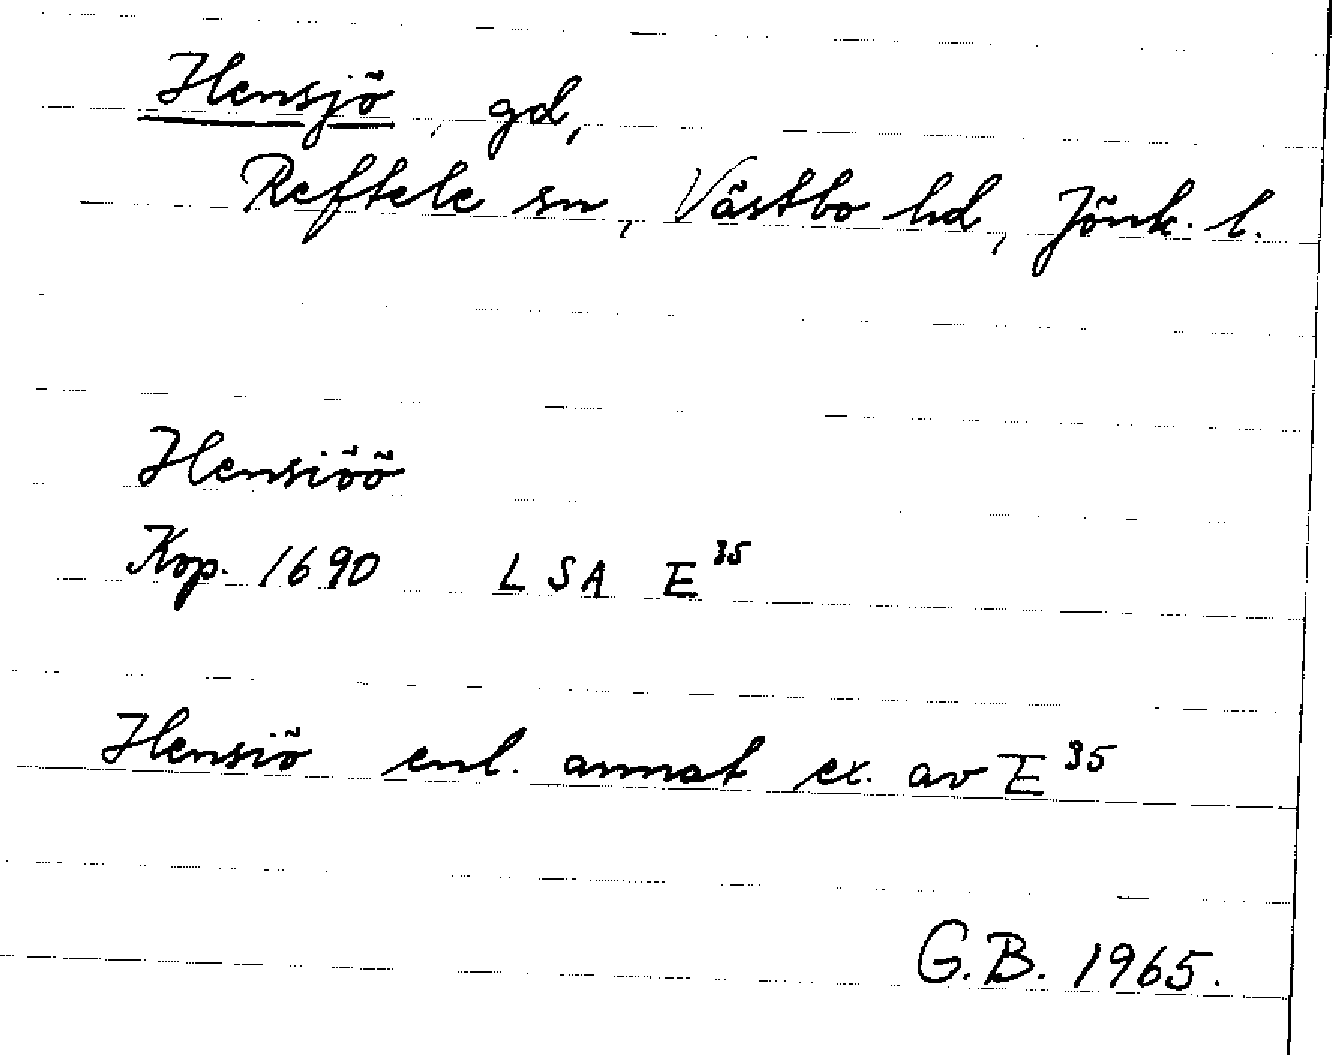 Hensjö, gd,
Reftele sn, Västbo hd, Jönk. l.
Hensiöö
Kop. 1690 LSA E³⁵
Hensiö enl. annat ex. av E³⁵
G.B. 1965.